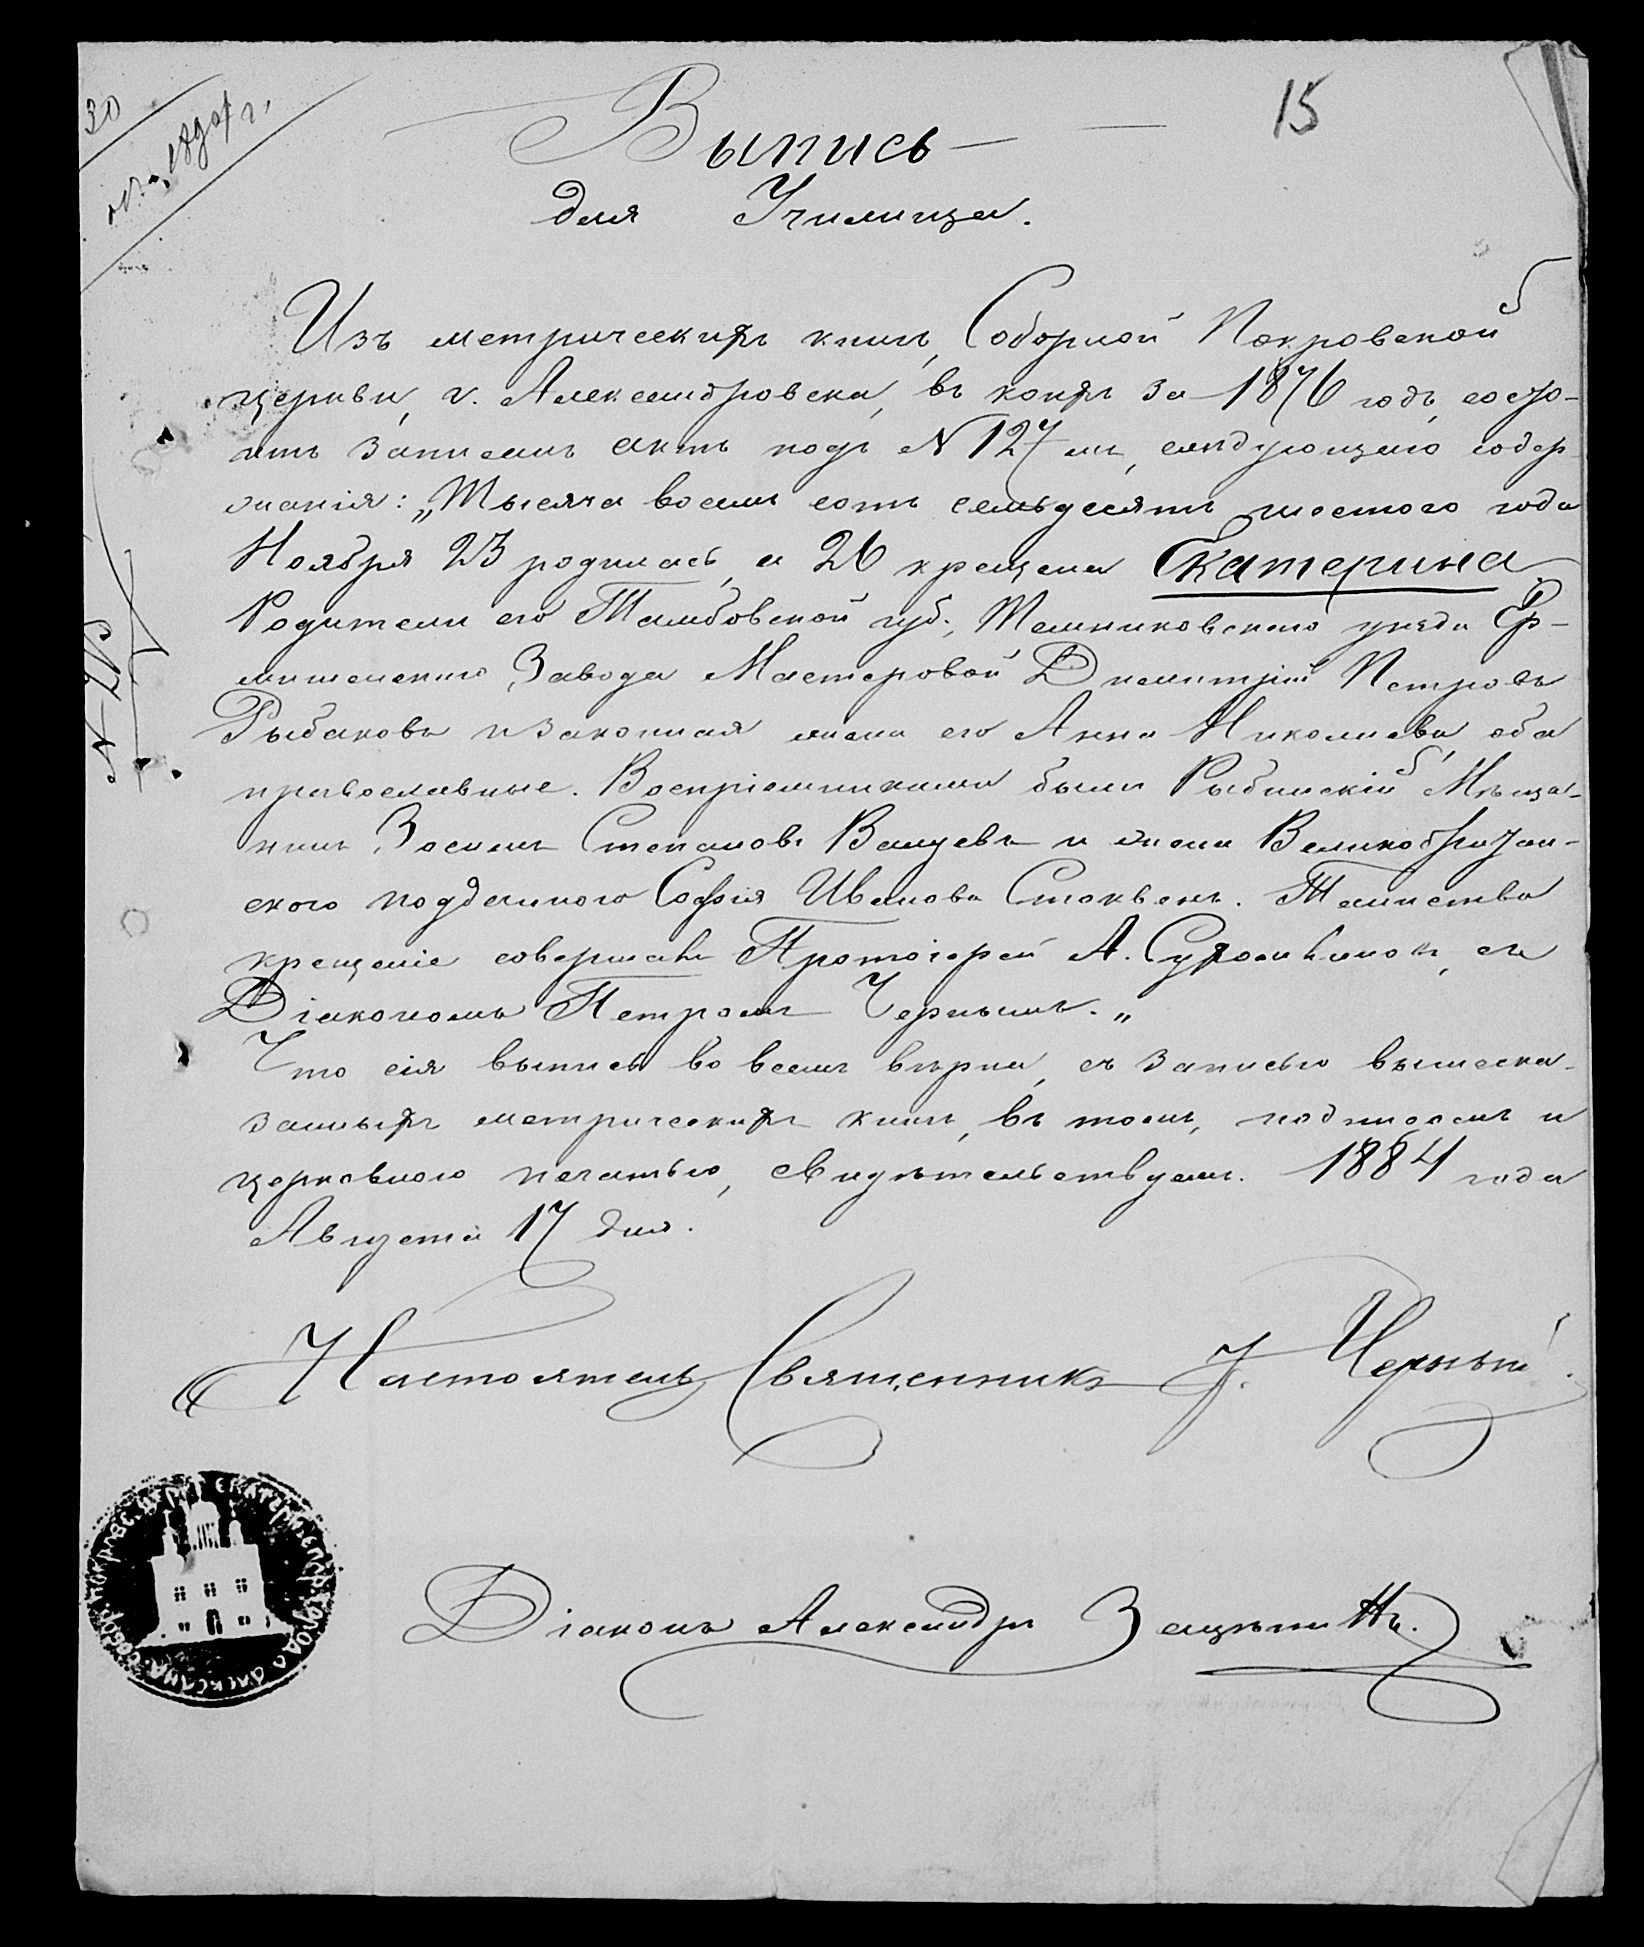 30
15
Выпись
для Училища.
Изъ метрическихъ книгъ, Соборной Покровской
церкви, г. Александровска, въ коихъ за 1876 годъ, состо-
итъ записанъ актъ подъ N 127 мъ, слѣдующаго содер
жанія: „Тысяча восемь сотъ семьдесятъ шестого года
Ноября 23 родилась, а 26 крещена Екатерина
Родители его Тамбовской губ., Темниковскаго уѣзда Ер-
мишенскаго Завода Мастеровой Димитрій Петровъ
Рыбаковъ и законная жена его Анна Николаева, оба
православные. Воспріемниками были Рыбинскій Мѣща-
нинъ Зосимъ Степановъ Валуевъ и жена Великобритан-
ского подданного Софія Иванова Стоквенъ. Таинство
крещеніе совершавъ Протоіерей А. съ
Діакономъ Петромъ Чернымъ.„
Что сія выпись во всемъ вѣрна, съ записью вышеска-
занныхъ метрическихъ книгъ, въ томъ, подписомъ и
церковною печатью, свидѣтельствуемъ. 1884 года
Августа 17 дня.
Настоятель Священникъ Черный.
Діаконъ Александръ